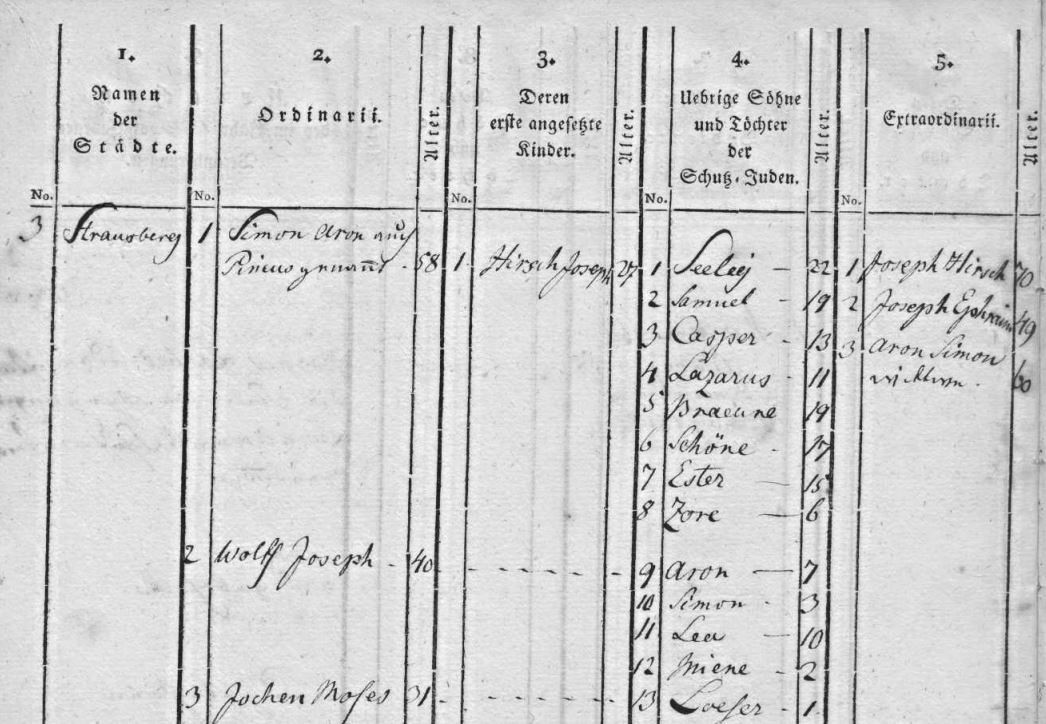 1. 2. 3. 4. 5.
Namen der Städte.
Ordinarii. Alter.
Deren erste angesetzte Kinder. Alter.
Uebrige Söhne und Töchter der Schutz-Juden. Alter.
Extraordinarii. Alter.
No. No. No. No. No.
3 Strausberg 1 Simon Aron auch
Pincus genannt - 58 1. Hirsch Joseph 27 1 Seelig - 22 1 Joseph Hirsch 70
2 Samuel - 19 2 Joseph Ephraim 49
3 Casper - 13 3 Aron Simon
4 Lazarus - 11 60
5 Braeune 19
6 Schöne - 17
7 Ester - 15
8 Zore - 6
2 Wolff Joseph - 40 - - - - - - 9 Aron - 7
10 Simon - 3
11 Lea - 10
12 Miene - 2
3 Jochen Moses 31 - - - - - - 13 Loeser - 1